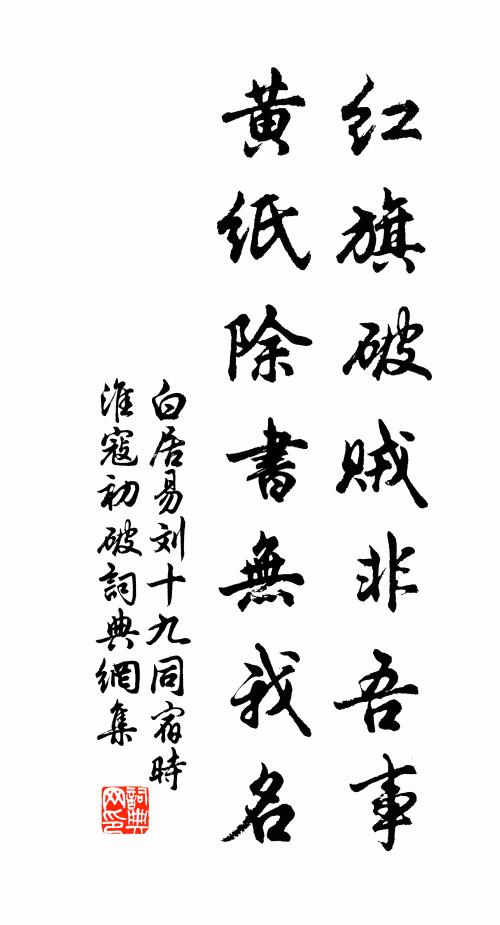 红旗破贼非吾事
黄纸除書無我名
白居易刘十九同宿時
淮寇初破詞典網集